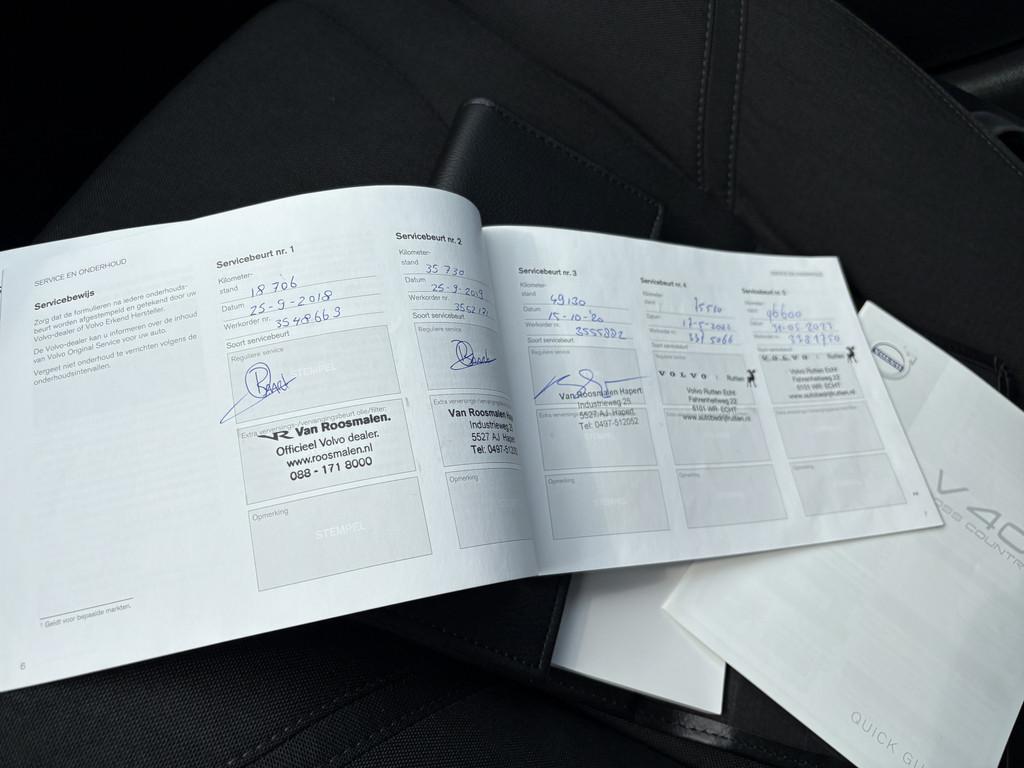 SERVICE EN ONDERHOUD
Servicebewijs
Zorg dat de formulieren na iedere onderhouds-
beurt worden afgestempeld en getekend door uw
Volvo-dealer of Volvo Erkend Hersteller.
De Volvo-dealer kan u informeren over de inhoud
van Volvo Original Service voor uw auto.
Vergeet niet onderhoud te verrichten volgens de
onderhoudsintervallen.
1 Geldt voor bepaalde markten.
6
Servicebeurt nr. 1
Kilometer-
stand 18 706
Datum 25-9-2018
Werkorder nr. 3548663
Soort servicebeurt
Reguliere service
STEMPEL
Extra verversings-/vervangingsbeurt olie/filter:
VR Van Roosmalen.
Officieel Volvo dealer.
www.roosmalen.nl
088 - 171 8000
Opmerking
STEMPEL
Servicebeurt nr. 2
Kilometer-
stand 35 730
Datum 25-9-2019
Werkorder nr.
Soort servicebeurt
Reguliere service
Extra verversings-/vervangings
Van Roosmalen
Industrieweg
5527 AJ Hapert
Tel: 0497-5120
Opmerking
Servicebeurt nr. 3
Kilometer-
stand 49130
Datum 15-10-'20
Werkorder nr. 3555882
Soort servicebeurt
Reguliere service
Van Roosmalen Hapert
Industrieweg 25
5527 AJ Hapert
Tel: 0497-512052
Opmerking
STEMPEL
SERVICE EN ONDERHOUD
Servicebeurt nr. 4
Kilometer-
stand
Datum
Werkorder nr.
Soort servicebeurt
Reguliere service
VOLVO Rutten
Volvo Rutten Echt
Fahrenheitweg 22
6101 WR ECHT
www.autobedrijfrutten.nl
Opmerking
Servicebeurt nr. 5
Kilometer-
stand 96600
Datum
Werkorder nr.
Soort servicebeurt
VOLVO Rutten
Volvo Rutten Echt
Fahrenheitweg 22
6101 WR ECHT
www.autobedrijfrutten.nl
Opmerking
7
VOLVO
V40
OSS COUNTR
QUICK GU